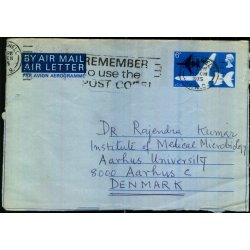 BY AIR MAIL
AIR LETTER
PAR AVION AEROGRAMME
REMEMBER
to use the
POST CODE
6p
Dr Rajendra Kumar
Institute of Medical Microbiology
Aarhus University
8000 Aarhus C
DENMARK